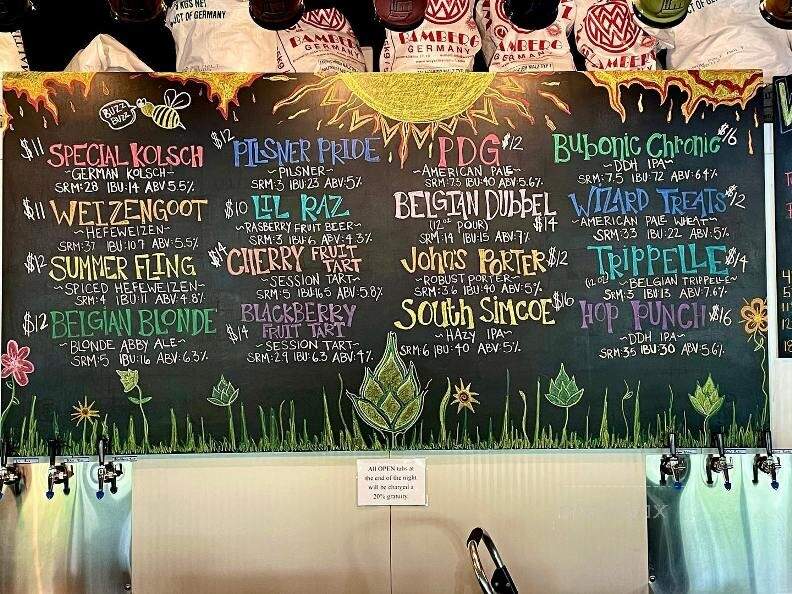 BAMBERG
GERMANY
BAMBERG
GERMANY
BAMBERG
GERMANY
BAMBERG
BUZZ
BUZZ
$11 SPECIAL KOLSCH
~GERMAN KOLSCH~
SRM:28 IBU:14 ABV 5.5%
$11 WEIZENGOOT
~HEFEWEIZEN~
SRM:37 IBU:107 ABV:5.5%
$12 SUMMER FLING
~SPICED HEFEWEIZEN~
SRM:4 IBU:11 ABV:4.8%
$12 BELGIAN BLONDE
~BLONDE ABBY ALE~
SRM:5 IBU:16 ABV:6.3%
$12 PILSNER PRIDE
~PILSNER~
SRM:3 IBU:23 ABV:5%
$10 LIL RAZ
~RASBERRY FRUIT BEER~
SRM:3 IBU:6 ABV:4.3%
$14 CHERRY FRUIT
TART
~SESSION TART~
SRM:5 IBU:16.5 ABV:5.8%
BLACKBERRY
$14 FRUIT TART
~SESSION TART~
SRM:2.9 IBU:6.3 ABV:4%
PDG $12
~AMERICAN PALE~
SRM:7.5 IBU:40 ABV:5.6%
BELGIAN DUBBEL
(12oz POUR) $14
SRM:14 IBU:15 ABV:7%
JOHN'S PORTER $12
~ROBUST PORTER~
SRM:36 IBU:40 ABV:5%
SOUTH SIMCOE $16
~HAZY IPA~
SRM:6 IBU:40 ABV:5%
BUBONIC CHRONIC $16
~DDH IPA~
SRM:7.5 IBU:72 ABV:6.4%
WIZARD TREATS $12
~AMERICAN PALE WHEAT~
SRM:3.3 IBU:22 ABV:5%
TRIPPELLE $14
~BELGIAN TRIPPELLE~
SRM:5 IBU:13 ABV:7.6%
HOP PUNCH $16
~DDH IPA~
SRM:35 IBU:30 ABV:5.6%
All OPEN tabs at
the end of the night
will be charged a
20% gratuity.